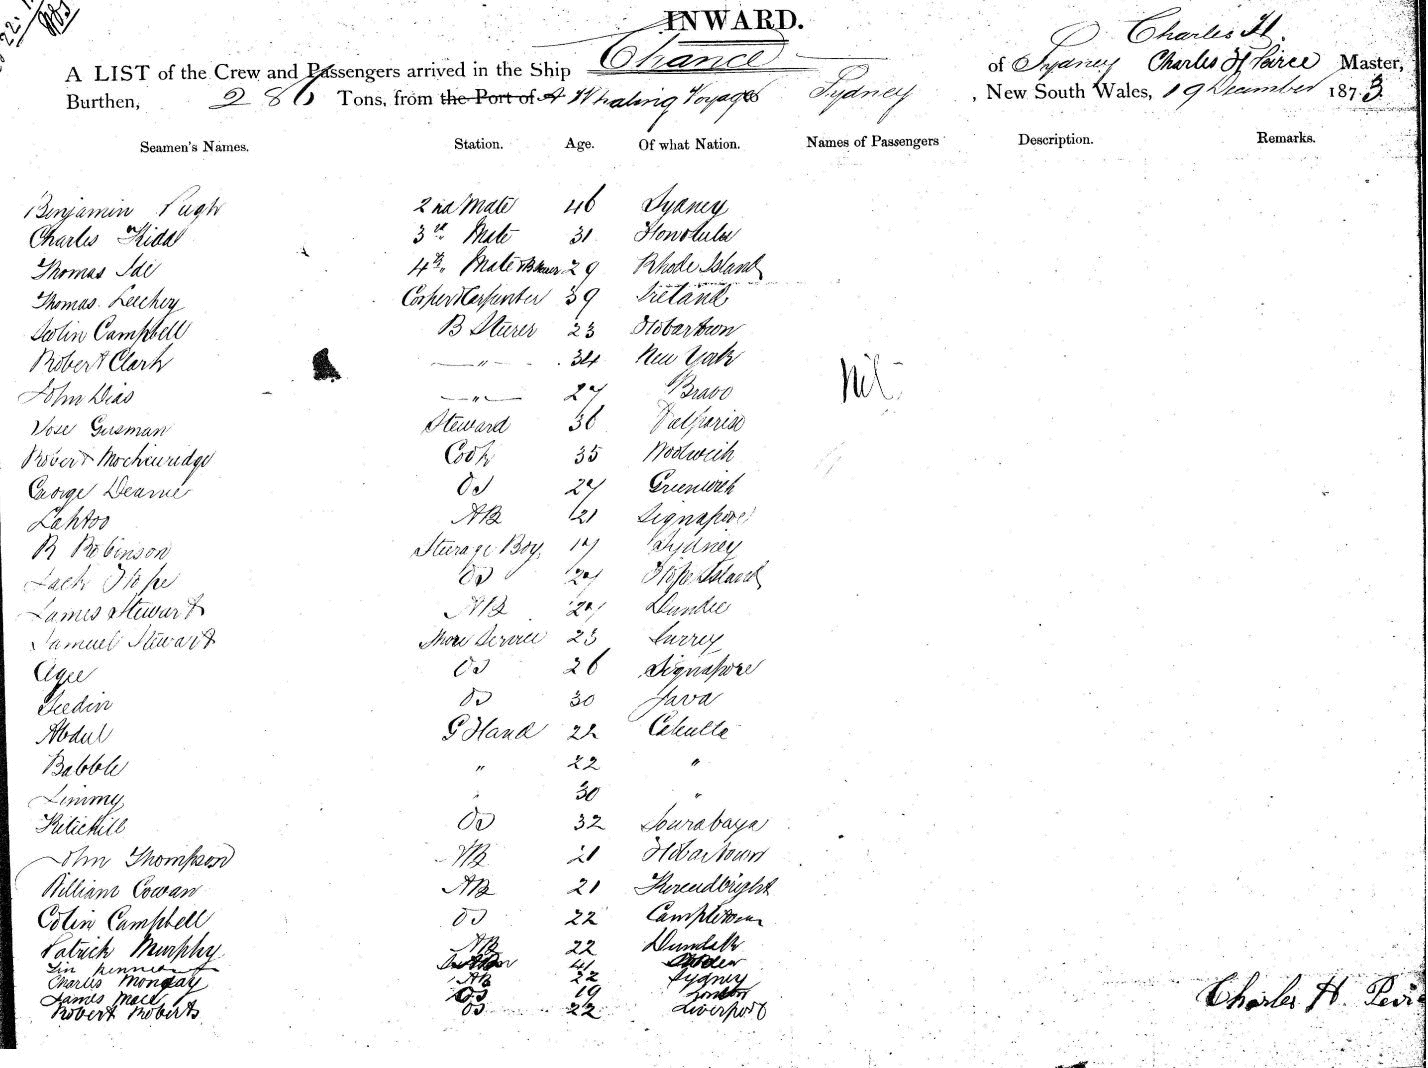 INWARD.
Charles H.
A LIST of the Crew and Passengers arrived in the Ship Chance of Sydney Charles H Peirce Master,
Burthen, 286 Tons, from the Port of A Whaling Voyage Sydney , New South Wales, 19 December 1873
Seamen's Names. Station. Age. Of what Nation. Names of Passengers Description. Remarks.
Benjamin Pugh 2nd Mate 46 Sydney
Charles Kidd 3rd Mate 31 Honolulu
Thomas Ide 4th Mate 29 Rhode Island
Thomas Leechey Cooper & Carpenter 39 Ireland
Colin Campbell B Sturer 23 Hobartown
Robert Clark —"— 34 New York
Nil
John Dias —"— 27 Bravo
Jose Gusman Steward 36 Valpariso
Robert Cook 35 Woolwich
George Deame OS 27 Greenwich
Lahtoo AB 21 Signapore
R Robinson Sturage Boy 17 Sydney
Jack Hope OS 27 Hope Island
James Stewart AB 27 Dundee
Samuel Stewart Shore Service 23 Surrey
Agee OS 26 Signapore
Seedin OS 30 Java
Abdul G Hand 22 Calcutta
Babble " 22 "
Jimmy " 30 "
Kitichill OS 32 Sourabaya
John Thompson AB 21 Hobartown
William Cowan AB 21
Colin Campbell OS 22 Campletown
Patrick Murphy AB 22 Dundalk
41
Charles Monday AB 22 Sydney
James OS 19 London
Robert Roberts OS 22 Liverpool
Charles H